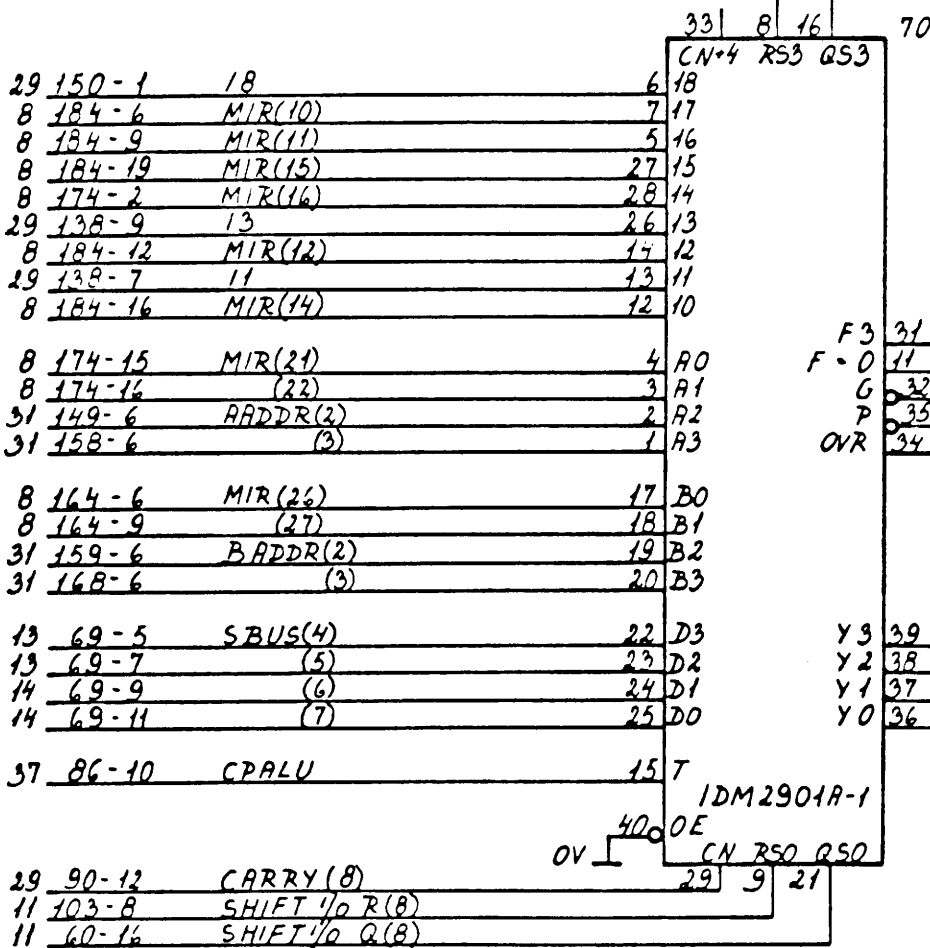 33 8 16 70
CN+4 RS3 QS3
29 150-1 I8 6 I8
8 184-6 MIR(10) 7 I7
8 184-9 MIR(11) 5 I6
8 184-19 MIR(15) 27 I5
8 174-2 MIR(16) 28 I4
29 138-9 I3 26 I3
8 184-12 MIR(12) 14 I2
29 138-7 I1 13 I1
8 184-16 MIR(14) 12 I0
F3 31
8 174-15 MIR(21) 4 A0 F-0 11
8 174-16 (22) 3 A1 G 32
31 149-6 AADDR(2) 2 A2 P 35
31 158-6 (3) 1 A3 OVR 34
8 164-6 MIR(26) 17 B0
8 164-9 (27) 18 B1
31 159-6 BADDR(2) 19 B2
31 168-6 (3) 20 B3
13 69-5 SBUS(4) 22 D3 Y3 39
13 69-7 (5) 23 D2 Y2 38
14 69-9 (6) 24 D1 Y1 37
14 69-11 (7) 25 D0 Y0 36
37 86-10 CPALU 15 T
IDM2901A-1
40 OE
0V CN RS0 QS0
29 90-12 CARRY(8) 29 9 21
11 103-8 SHIFT I/O R(8)
11 60-16 SHIFT I/O Q(8)